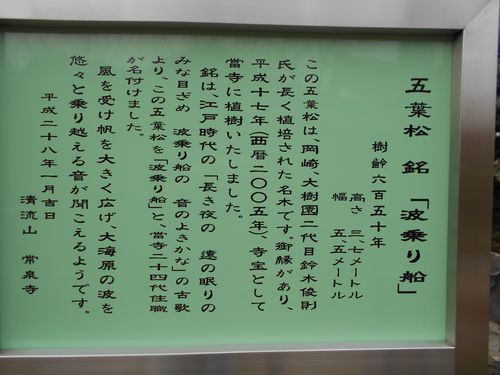 五葉松 銘 「波乗り船」
樹齢六百五十年
高さ 三、七メートル
幅 五、五メートル
この五葉松は、岡崎、大樹園二代目鈴木俊則
氏が長く植培された名木です。御縁があり、
平成十七年(西暦二〇〇五年)、寺宝として
當寺に植樹いたしました。
銘は、江戸時代の「長き夜の 遠の眠りの
みな目ざめ 波乗り船の 音のよきかな」の古歌
より、この五葉松を「波乗り船」と、當寺二十四代住職
が名付けました。
風を受け帆を大きく広げ、大海原の波を
悠々と乗り越える音が聞こえるようです。
平成二十八年一月吉日
清流山 常泉寺